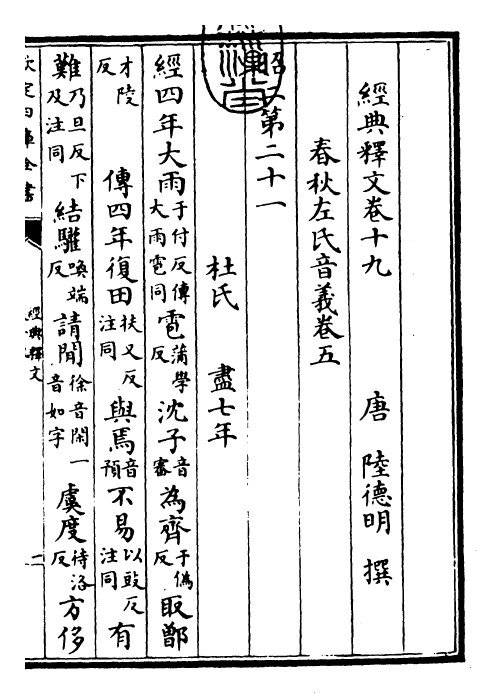 經典釋文卷十九 唐 陸德明 撰
春秋左氏音義卷五
昭二第二十一
杜氏 盡七年
經四年大雨于付反傳大雨雹同雹蒲學反沈子音審為齊于偽反取鄫
才陵反 傳四年復田扶又反注同與焉音預不易以豉反注同有
難乃旦反下及注同結驩喚端反請間徐音閑一音如字虞度待洛反方侈
欽定四庫全書
經典釋文